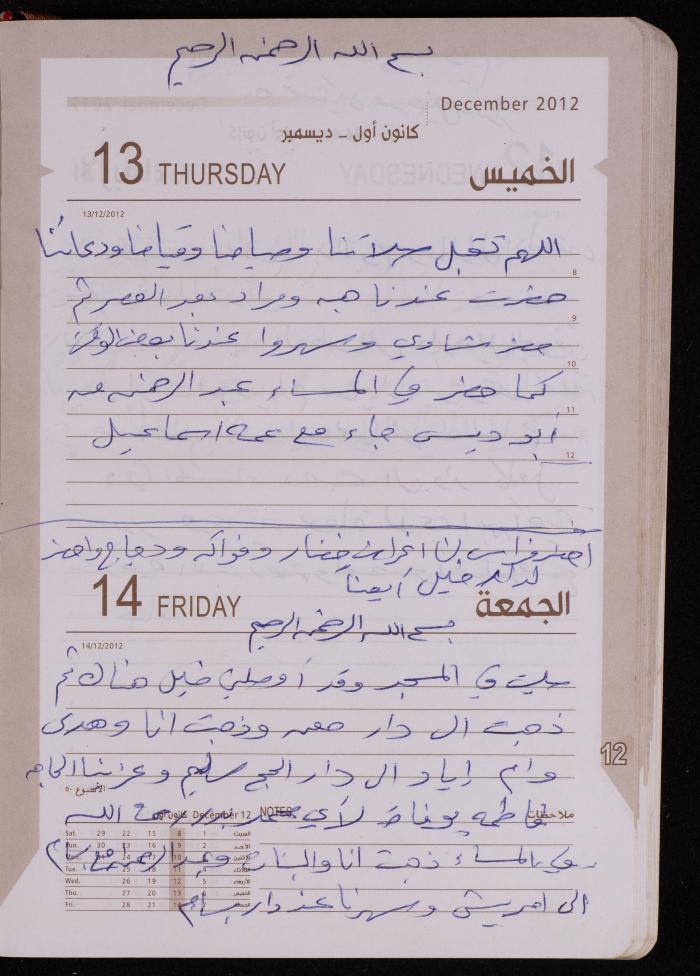 بسم الله الرحمن الرحيم
December 2012
كانون أول - ديسمبر
13 THURSDAY الخميس
13/12/2012
اللهم تقبل صلاتنا وصيامنا وقيامنا ودعائنا
8
حضرت عندنا هبه ومراد بعد العصر ثم
9
حضر شاوي وسهروا عندنا بعض الوقت
10
كما حضر في المساء عبد الرحمن من
11
أبو ديس جاء مع عمه اسماعيل
12
احضر فراس لنا اغراض خضار وفواكه ودجاج واحضر
كذلك خليل أيضا
14 FRIDAY الجمعة
بسم الله الرحمن الرحيم
14/12/2012
صليت في المسجد وقد أوصلني خليل هناك ثم
ذهبت الى دار وذهبت انا وهدى
12
وام اياد الى دار الحج سليم وعزينا الحاجه
الأسبوع ٥٠
فاطمه بوفاة رحمة الله
ملاحظات NOTES December 12 كانون أول
Sat. 29 22 15 8 1 السبت
Sun. 30 23 16 9 2 الأحد
Mon. 24 17 10
Tue. 25 18 11 4 الثلاثاء
Wed. 26 19 12 5 الأربعاء
Thu. 27 20 13 6 الخميس
Fri. 28 21 14
وفي المساء ذهبت انا والبنات وعبد الرحمن مع
الى وسهرنا عند دار بسام